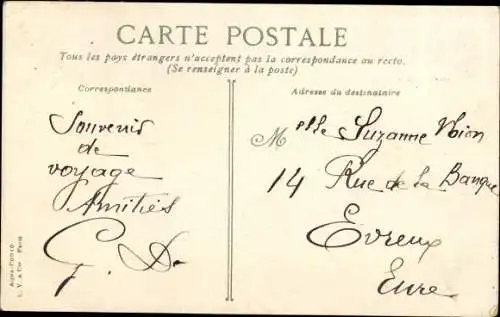 CARTE POSTALE
Tous les pays étrangers n'acceptent pas la correspondance au recto.
(Se renseigner à la poste)
Correspondance
Adresse du destinataire
Souvenir
de
voyage
Amitiés
G. D.
Melle Suzanne Noion
14 Rue de la Banque
Evreux
Eure
L. V. & Cie Paris